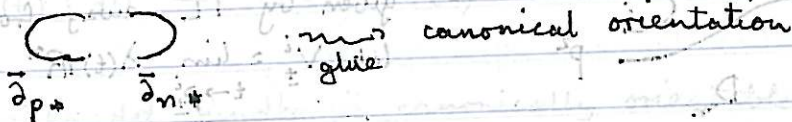 glue canonical orientation
∂⃗p* ∂⃗n*